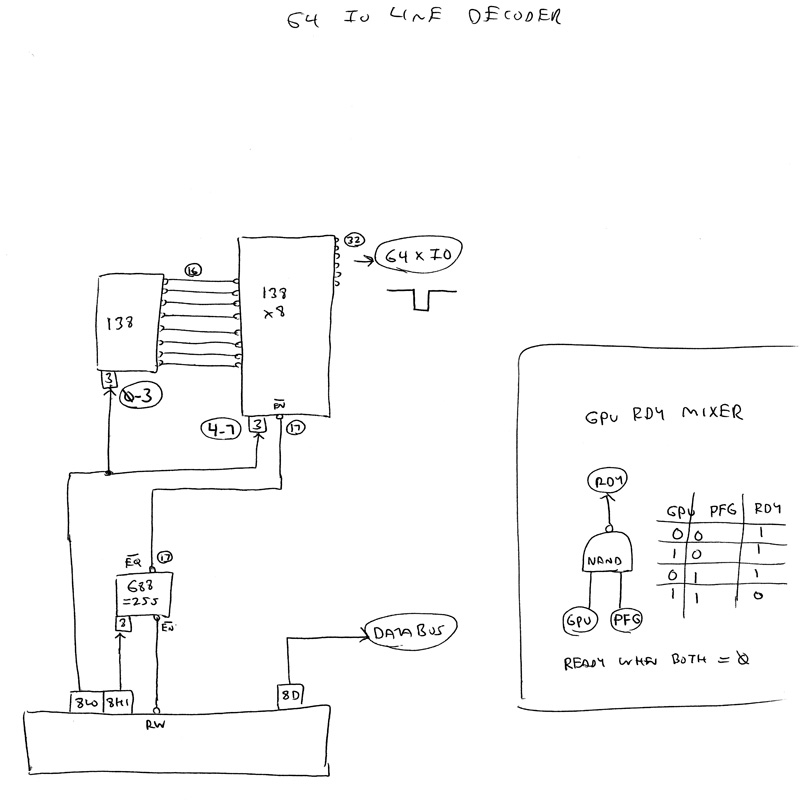 64 IO LINE DECODER
32
64 X IO
16
138
138
X8
3
0-3
EN
4-7
3
17
EQ
17
688
=255
EN
DATABUS
8LO
8HI
8D
RW
GPU RDY MIXER
RDY
NAND
GPU
PFG
GPU PFG RDY
0 0 1
1 0 1
0 1 1
1 1 0
READY WHEN BOTH = 0